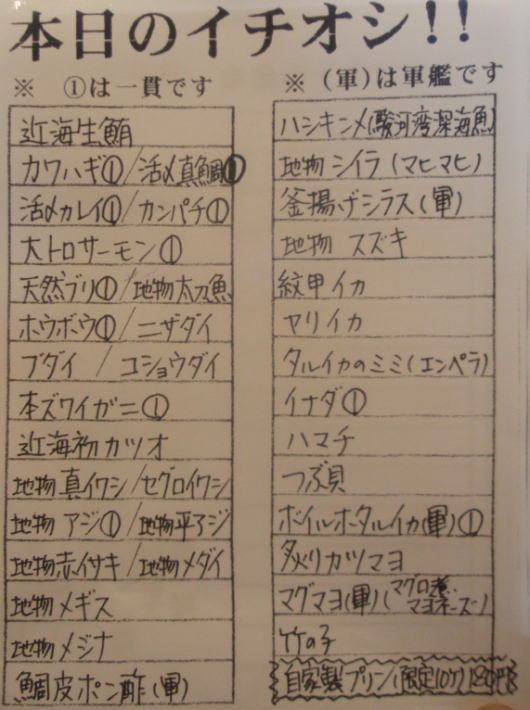 本日のイチオシ!!
※ ①は一貫です
近海生鮪
カワハギ①/活〆真鯛①
活〆カレイ①/カンパチ①
大トロサーモン①
天然ブリ①/地物太刀魚
ホウボウ①/ニザダイ
ブダイ / コショウダイ
本ズワイガニ①
近海初カツオ
地物真イワシ/セグロイワシ
地物 アジ①/地物平アジ
地物赤イサキ/地物メダイ
地物メギス
地物メジナ
鯛皮ポン酢(軍)
※ (軍)は軍艦です
ハシキンメ(駿河湾深海魚)
地物 シイラ(マヒマヒ)
釜揚げシラス(軍)
地物 スズキ
紋甲イカ
ヤリイカ
タルイカのミミ(エンペラ)
イナダ①
ハマチ
つぶ貝
ボイルホタルイカ(軍)①
炙りカツマヨ
マグマヨ(軍)(マグロ煮マヨネーズ)
竹の子
自家製プリン(限定10ケ)180円